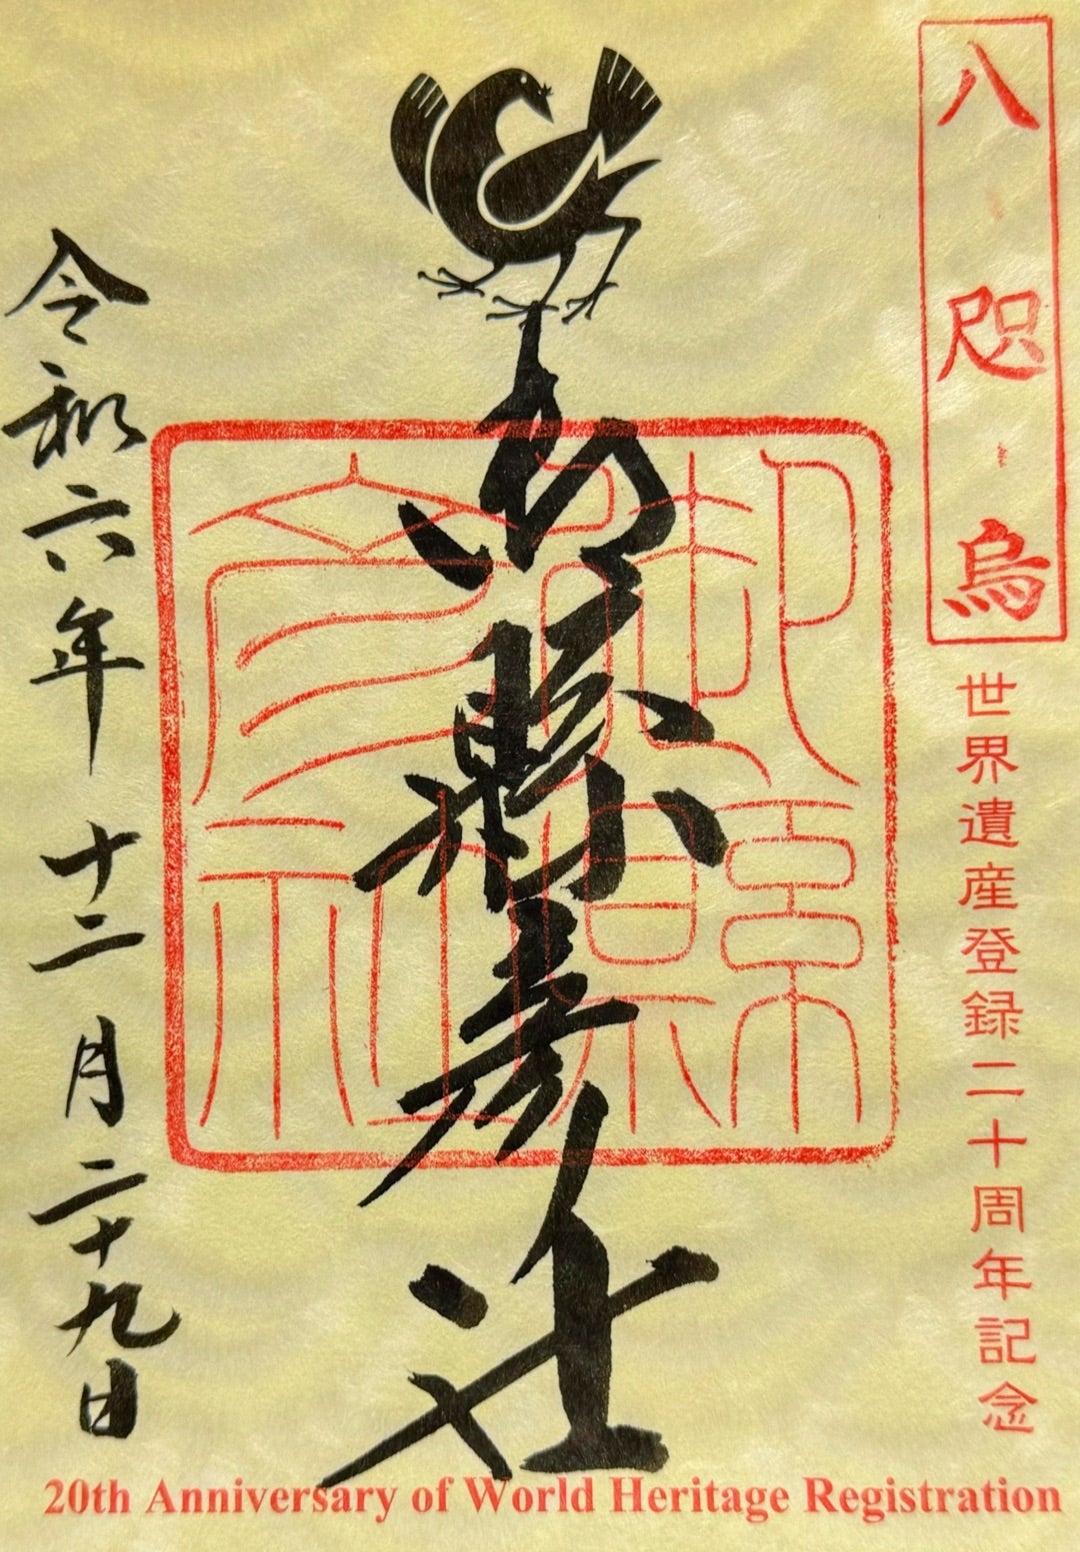 八咫烏
世界遺産登録二十周年記念
御縣彦社
御縣
彦社
令和六年十二月二十九日
20th Anniversary of World Heritage Registration